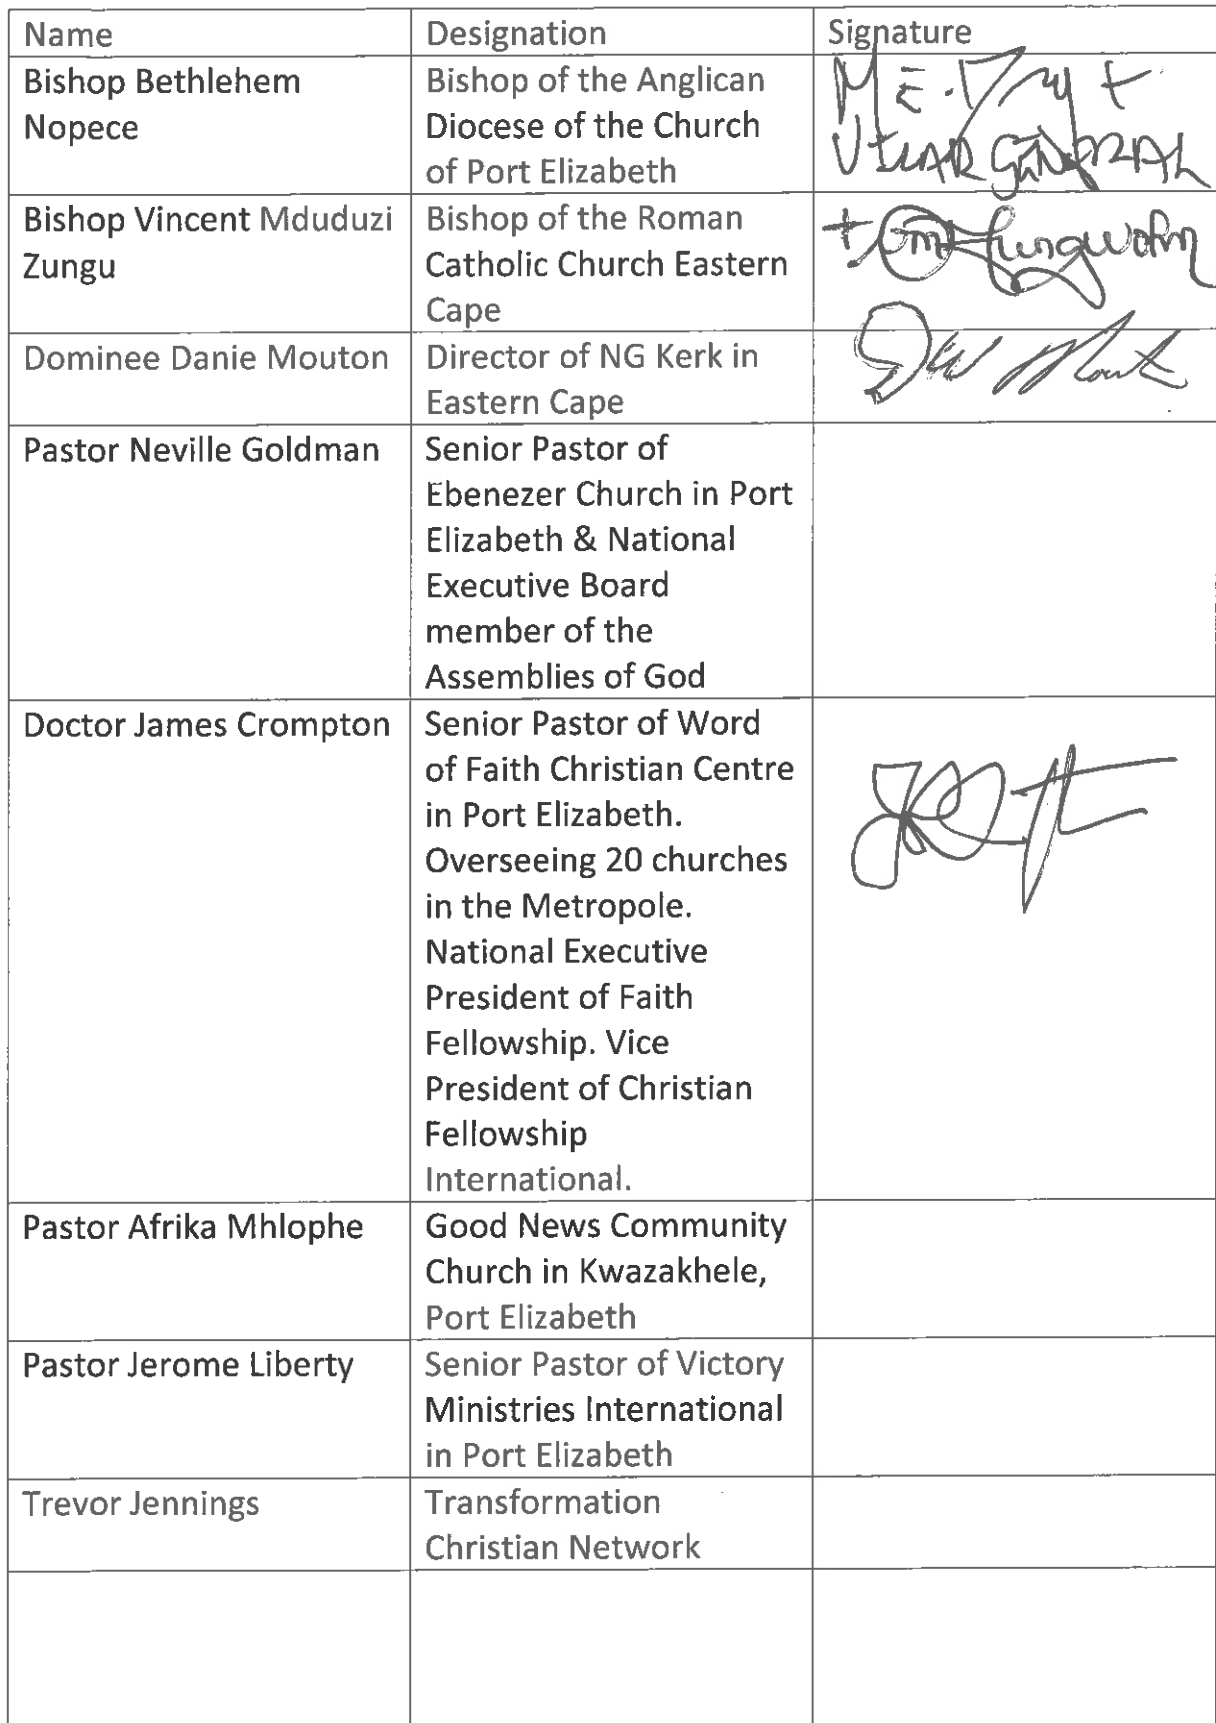 Name
Designation
Signature
Bishop Bethlehem
Nopece
Bishop of the Anglican
Diocese of the Church
of Port Elizabeth
VICAR GENERAL
Bishop Vincent Mduduzi
Zungu
Bishop of the Roman
Catholic Church Eastern
Cape
Dominee Danie Mouton
Director of NG Kerk in
Eastern Cape
Pastor Neville Goldman
Senior Pastor of
Ebenezer Church in Port
Elizabeth & National
Executive Board
member of the
Assemblies of God
Doctor James Crompton
Senior Pastor of Word
of Faith Christian Centre
in Port Elizabeth.
Overseeing 20 churches
in the Metropole.
National Executive
President of Faith
Fellowship. Vice
President of Christian
Fellowship
International.
Pastor Afrika Mhlophe
Good News Community
Church in Kwazakhele,
Port Elizabeth
Pastor Jerome Liberty
Senior Pastor of Victory
Ministries International
in Port Elizabeth
Trevor Jennings
Transformation
Christian Network